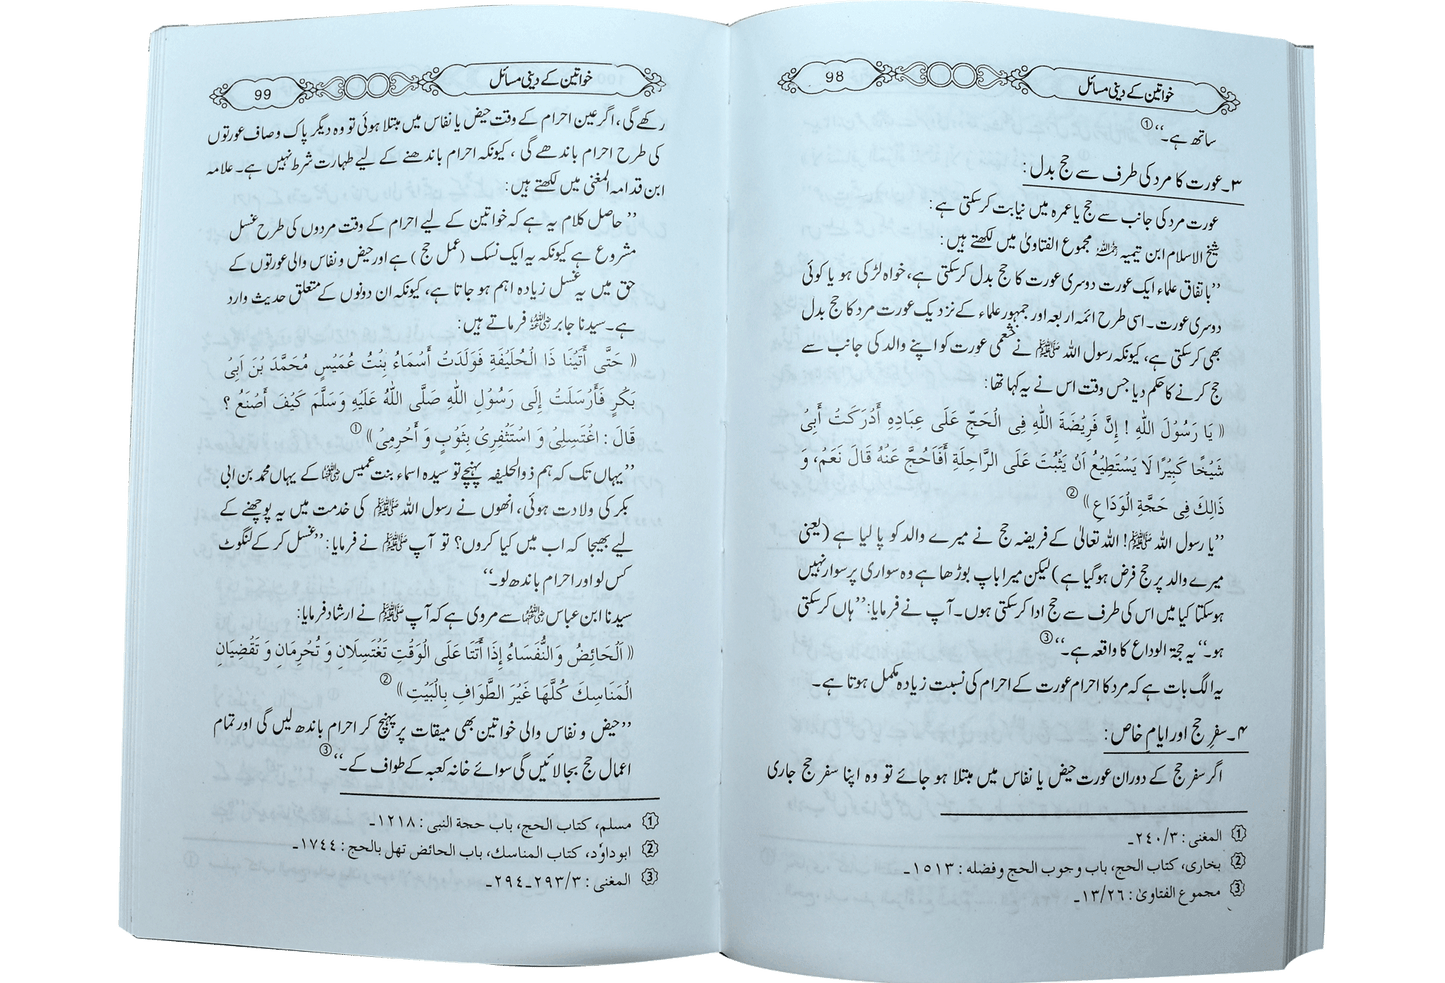 خواتین کے دینی مسائل
98
ساتھ ہے۔‘‘①
۳۔ عورت کا مرد کی طرف سے حج بدل:
عورت مرد کی جانب سے حج یا عمرہ میں نیابت کر سکتی ہے:
شیخ الاسلام ابن تیمیہ رحمہ اللہ مجموع الفتاویٰ میں لکھتے ہیں:
’’باتفاق علماء ایک عورت دوسری عورت کا حج بدل کر سکتی ہے، خواہ لڑکی ہو یا کوئی
دوسری عورت۔ اسی طرح ائمہ اربعہ اور جمہور علماء کے نزدیک عورت مرد کا حج بدل
بھی کر سکتی ہے، کیونکہ رسول اللہ ﷺ نے خثعمی عورت کو اپنے والد کی جانب سے
حج کرنے کا حکم دیا جس وقت اس نے یہ کہا تھا:
((یَا رَسُوْلَ اللّٰہِ ! إِنَّ فَرِیْضَةَ اللّٰہِ فِی الْحَجِّ عَلَی عِبَادِہِ أَدْرَکَتْ أَبِیْ
شَیْخًا کَبِیْرًا لَا یَسْتَطِیْعُ اَنْ یَثْبُتَ عَلَی الرَّاحِلَةِ أَفَأَحُجُّ عَنْہُ قَالَ نَعَمْ، وَ
ذَالِكَ فِی حَجَّةِ الْوَدَاعِ))②
’’یا رسول اللہ ﷺ! اللہ تعالیٰ کے فریضہ حج نے میرے والد کو پا لیا ہے (یعنی
میرے والد پر حج فرض ہوگیا ہے) لیکن میرا باپ بوڑھا ہے وہ سواری پر سوار نہیں
ہوسکتا کیا میں اس کی طرف سے حج ادا کر سکتی ہوں۔ آپ نے فرمایا: ’’ہاں کر سکتی
ہو۔‘‘ یہ حجۃ الوداع کا واقعہ ہے۔‘‘③
یہ الگ بات ہے کہ مرد کا احرام عورت کے احرام کی نسبت زیادہ مکمل ہوتا ہے۔
۴۔ سفرِ حج اور ایامِ خاص:
اگر سفر حج کے دوران عورت حیض یا نفاس میں مبتلا ہو جائے تو وہ اپنا سفر حج جاری
① المغنی : ۳/۲۴۰۔
② بخاری، کتاب الحج، باب وجوب الحج و فضله : ۱۵۱۳۔
③ مجموع الفتاویٰ : ۲۶/۱۳۔
خواتین کے دینی مسائل
99
رکھے گی، اگر عین احرام کے وقت حیض یا نفاس میں مبتلا ہوئی تو وہ دیگر پاک و صاف عورتوں
کی طرح احرام باندھے گی ، کیونکہ احرام باندھنے کے لیے طہارت شرط نہیں ہے۔ علامہ
ابن قدامہ المغنی میں لکھتے ہیں:
’’ حاصل کلام یہ ہے کہ خواتین کے لیے احرام کے وقت مردوں کی طرح غسل
مشروع ہے کیونکہ یہ ایک نسک (عمل حج ) ہے اور حیض و نفاس والی عورتوں کے
حق میں یہ غسل زیادہ اہم ہو جاتا ہے، کیونکہ ان دونوں کے متعلق حدیث وارد
ہے۔ سیدنا جابر رضی اللہ عنہ فرماتے ہیں:
((حَتَّی أَتَیْنَا ذَا الْحُلَیْفَةِ فَوَلَدَتْ أَسْمَاءُ بِنْتُ عُمَیْسٍ مُحَمَّدَ بْنَ اَبِی
بَکْرٍ فَأَرْسَلَتْ إِلَی رَسُوْلِ اللّٰہِ صَلَّی اللّٰہُ عَلَیْہِ وَسَلَّمَ کَیْفَ أَصْنَعُ ؟
قَالَ : اغْتَسِلِیْ وَ اسْتَثْفِرِیْ بِثَوْبٍ وَ أَحْرِمِیْ))①
’’یہاں تک کہ ہم ذوالحلیفہ پہنچے تو سیدہ اسماء بنت عمیس رضی اللہ عنہا کے یہاں محمد بن ابی
بکر کی ولادت ہوئی، انھوں نے رسول اللہ ﷺ کی خدمت میں یہ پوچھنے کے
لیے بھیجا کہ اب میں کیا کروں؟ تو آپ ﷺ نے فرمایا: ’’غسل کر کے لنگوٹ
کس لو اور احرام باندھ لو۔‘‘
سیدنا ابن عباس رضی اللہ عنہما سے مروی ہے کہ آپ ﷺ نے ارشاد فرمایا:
((اَلْحَائِضُ وَالنُّفَسَاءُ إِذَا أَتَتَا عَلَی الْوَقْتِ تَغْتَسِلَانِ وَ تُحْرِمَانِ وَ تَقْضِیَانِ
الْمَنَاسِكَ کُلَّھَا غَیْرَ الطَّوَافِ بِالْبَیْتِ))②
’’حیض و نفاس والی خواتین بھی میقات پر پہنچ کر احرام باندھ لیں گی اور تمام
اعمال حج بجا لائیں گی سوائے خانہ کعبہ کے طواف کے۔‘‘③
① مسلم، کتاب الحج، باب حجة النبی : ۱۲۱۸۔
② ابوداوٗد، کتاب المناسك، باب الحائض تهل بالحج : ۱۷۴۴۔
③ المغنی : ۳/۲۹۳۔۲۹۴۔